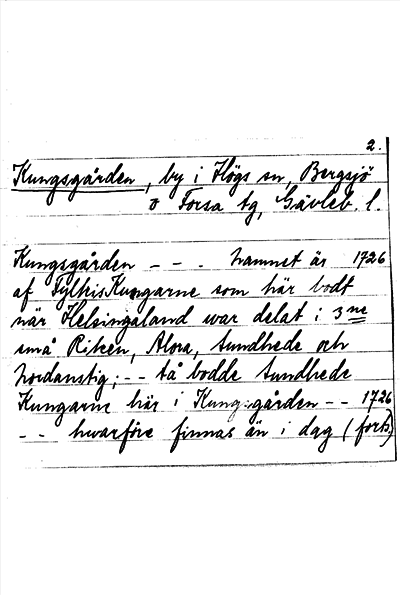 2.
Kungsgården, by i Högs sn, Bergsjö
o Forsa tg, Gävleb. l.
Kungsgården - - - hamnet är 1726
af FylkisKungarne som här bodt
när Helsingaland war delat i 3ne
små Riken, Alora, Sundhede och
Nordanstig; - - tå bodde Sundhede
Kungarne här i Kung:gården - - 1726
- - hwarföre finnas än i dag (forts)